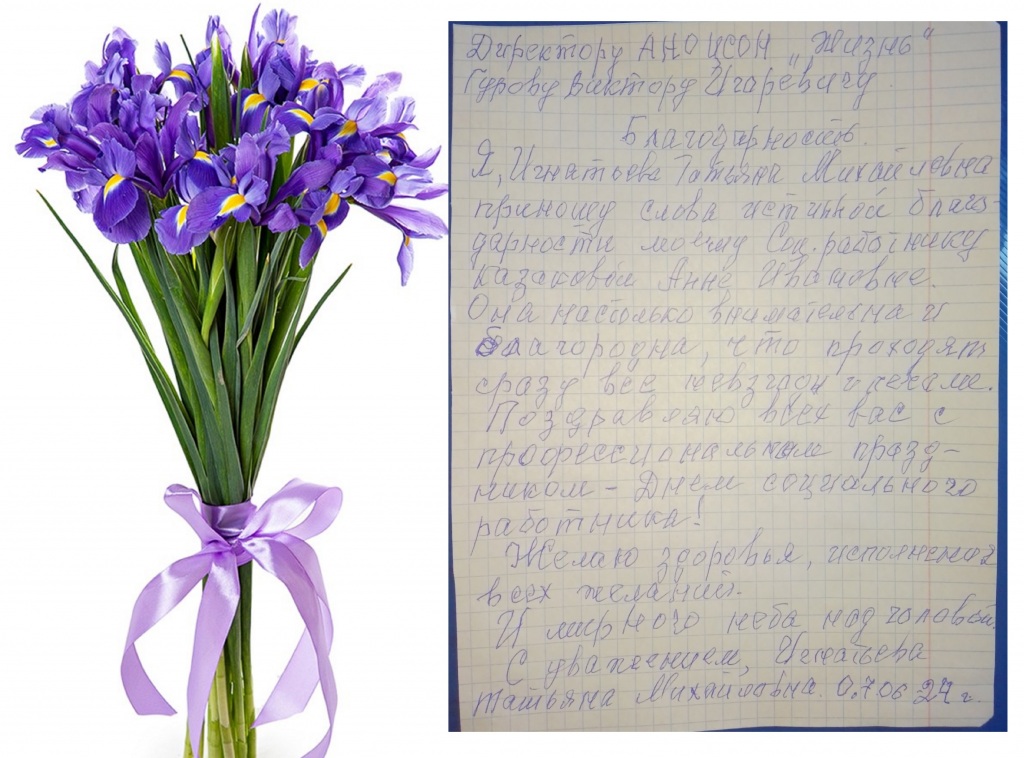 Директору АНО ЦСОН „Жизнь“
Гурову Виктору Игаревичу
Благодарность.
Я, Игнатьева Татьяна Михайловна
приношу слова истинной благо
дарности моему Соц. работнику
Казаковой Анне Ивановне.
Она настолько внимательна и
благородна, что проходят
сразу все невзгоды и печали.
Поздравляю всех вас с
профессиональным празд-
ником - Днем социального
работника!
Желаю здоровья, исполнения
всех желаний.
И мирного неба над головой.
С уважением, Игнатьева
Татьяна Михайловна. 07.06 24 г.